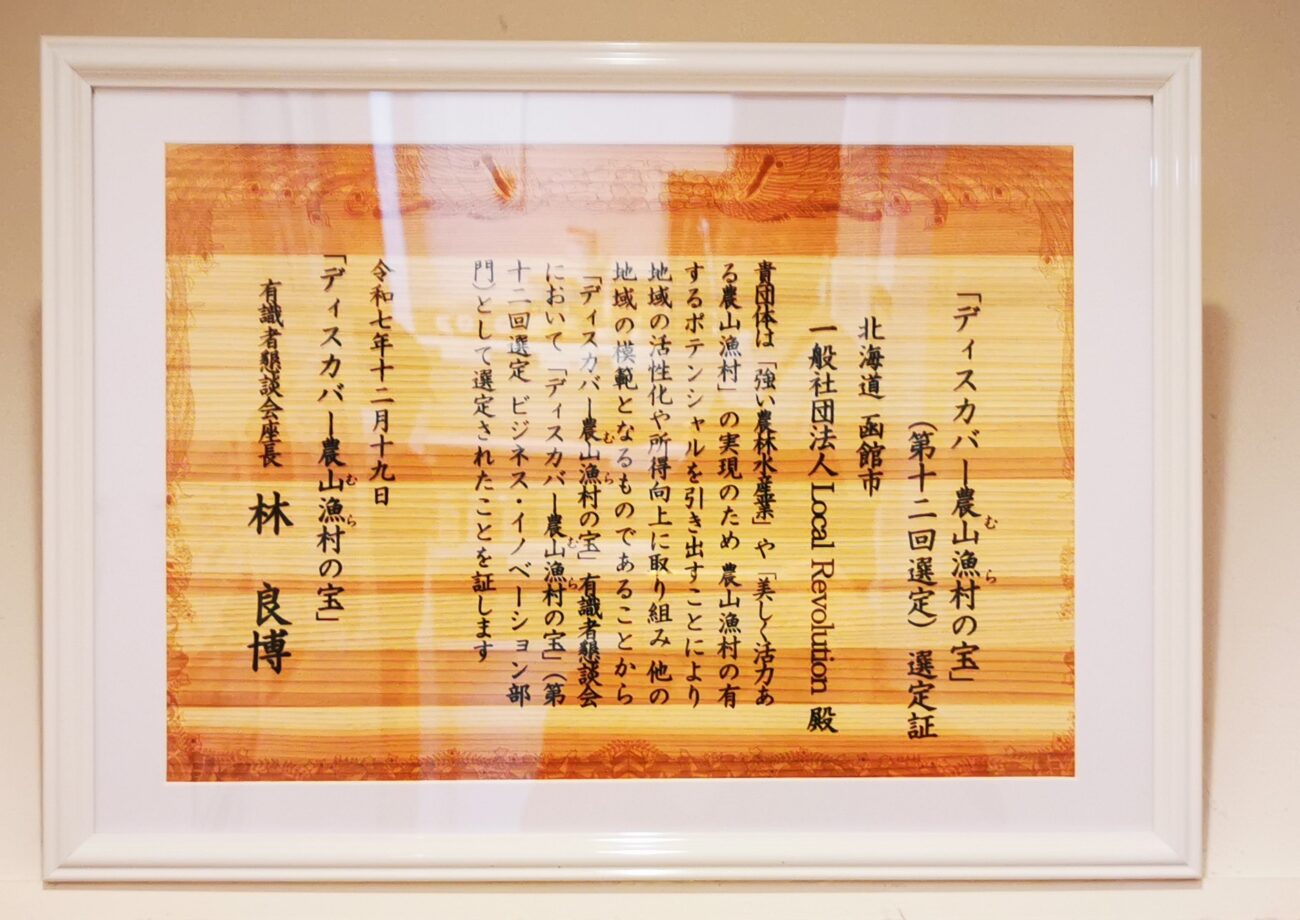 「ディスカバー農山漁村の宝」
むら
(第十二回選定) 選定証
北海道 函館市
一般社団法人 Local Revolution 殿
貴団体は「強い農林水産業」や「美しく活力あ
る農山漁村」の実現のため 農山漁村の有
するポテンシャルを引き出すことにより
地域の活性化や所得向上に取り組み 他の
地域の模範となるものであることから
「ディスカバー農山漁村の宝」有識者懇談会
むら
において「ディスカバー農山漁村の宝」(第
むら
十二回選定 ビジネス・イノベーション部
門)として選定されたことを証します
令和七年十二月十九日
「ディスカバー農山漁村の宝」
むら
有識者懇談会座長 林 良博